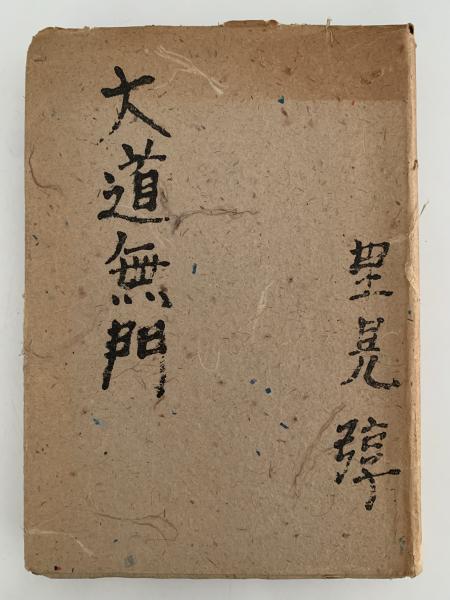 里見弴
大道無門